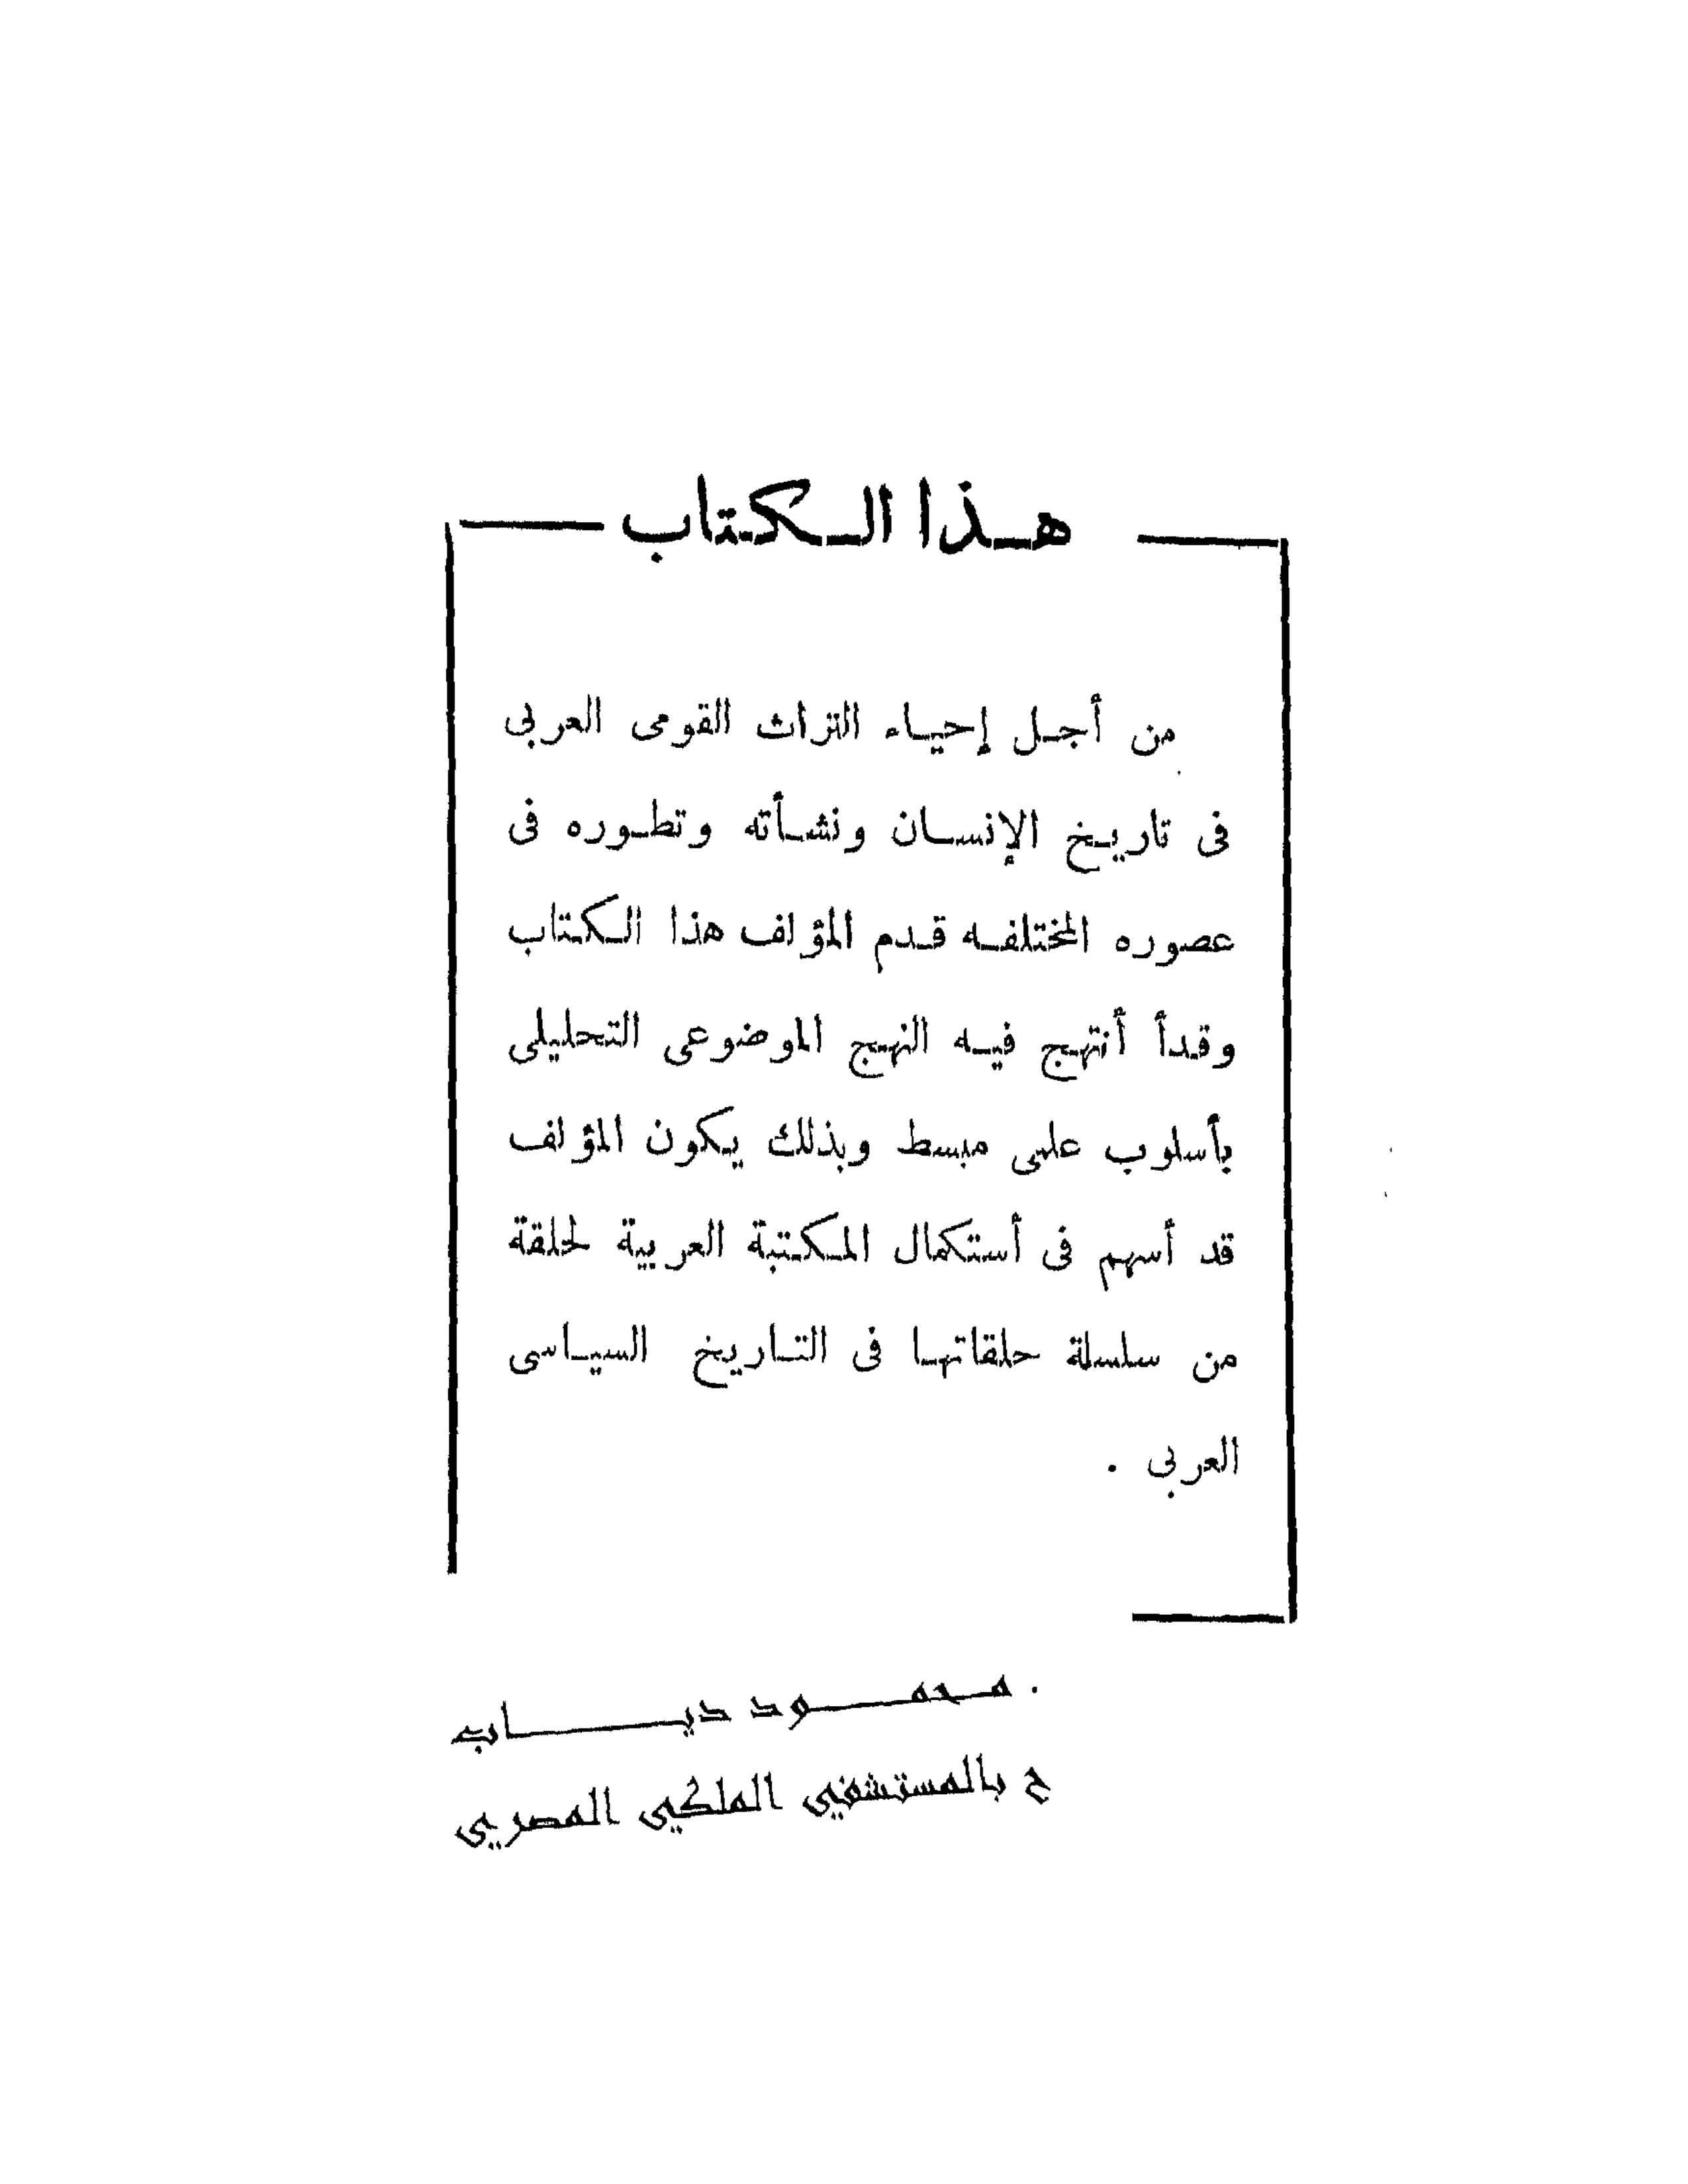 هذا الكتاب
من أجل إحياء التراث القومى العربى
فى تاريخ الإنسان ونشأته وتطوره فى
عصوره المختلفه قدم المؤلف هذا الكتاب
وقدأ أنتهج فيه النهج الموضوعى التحليلى
بأسلوب علمى مبسط وبذلك يكون المؤلف
قد أسهم فى أستكمال المكتبة العربية لحلقة
من سلسلة حلقاتها فى التاريخ السياسى
العربى .
. محمود دياب
ح بالمستشفي الملكي المصري